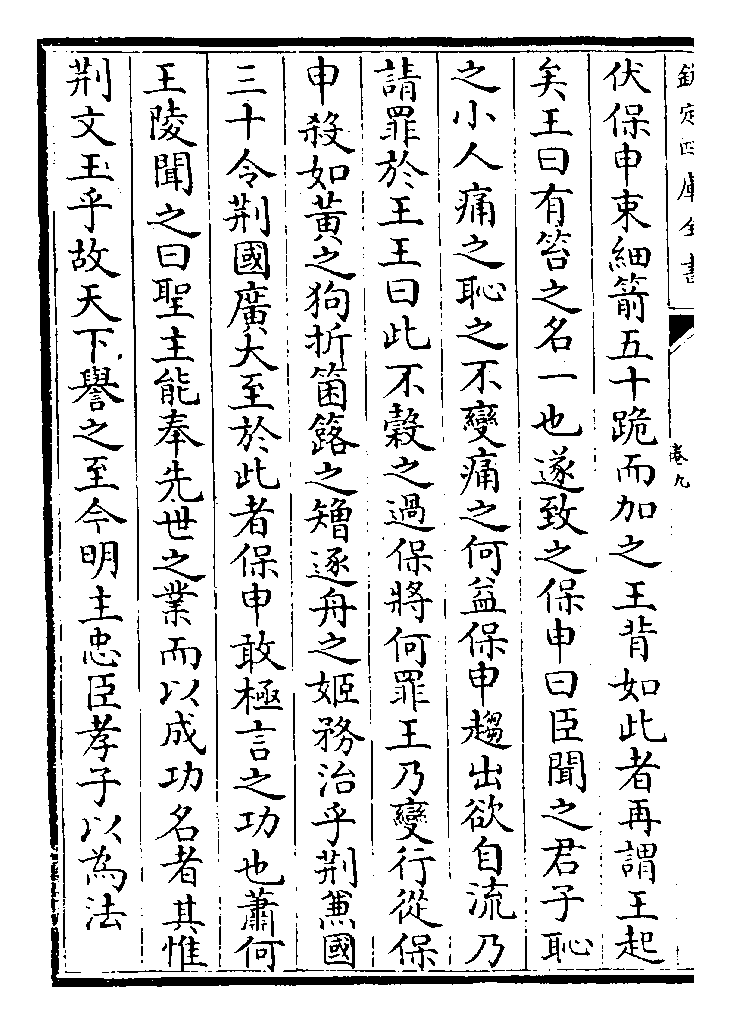 欽定四庫全書
卷九
伏保申束細箭五十跪而加之王背如此者再謂王起
矣王曰有笞之名一也遂致之保申曰臣聞之君子恥
之小人痛之恥之不變痛之何益保申趨出欲自流乃
請罪於王王曰此不穀之過保將何罪王乃變行從保
申殺如黃之狗折箘簬之矰逐舟之姬務治乎荆兼國
三十令荆國廣大至於此者保申敢極言之功也蕭何
王陵聞之曰聖主能奉先世之業而以成功名者其惟
荆文王乎故天下譽之至今明主忠臣孝子以為法